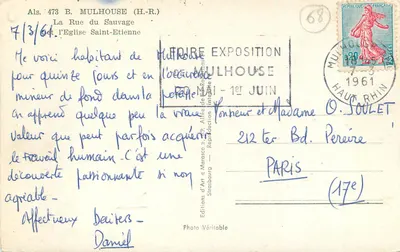 Als. 473 B. MULHOUSE (H.-R.)
La Rue du Sauvage
et l'Eglise Saint-Etienne
68
7/3/61
Me voici habitant de Mulhouse
pour quinze jours et en l'occurence
mineur de fond dans la potasse.
On apprend quelque peu la vraie
valeur que peut parfois acquérir
le travail humain. C'est une
découverte passionnante si non
agréable.
Affectueux Baisers.
Daniel
FOIRE EXPOSITION
MULHOUSE
MAI - 1er JUIN
MULHOUSE
1961
HAUT-RHIN
Monsieur et Madame O. JOULET
212 ter Bd. Pereire
PARIS
(17e)
Editions d'Art
Strasbourg
Photo Véritable